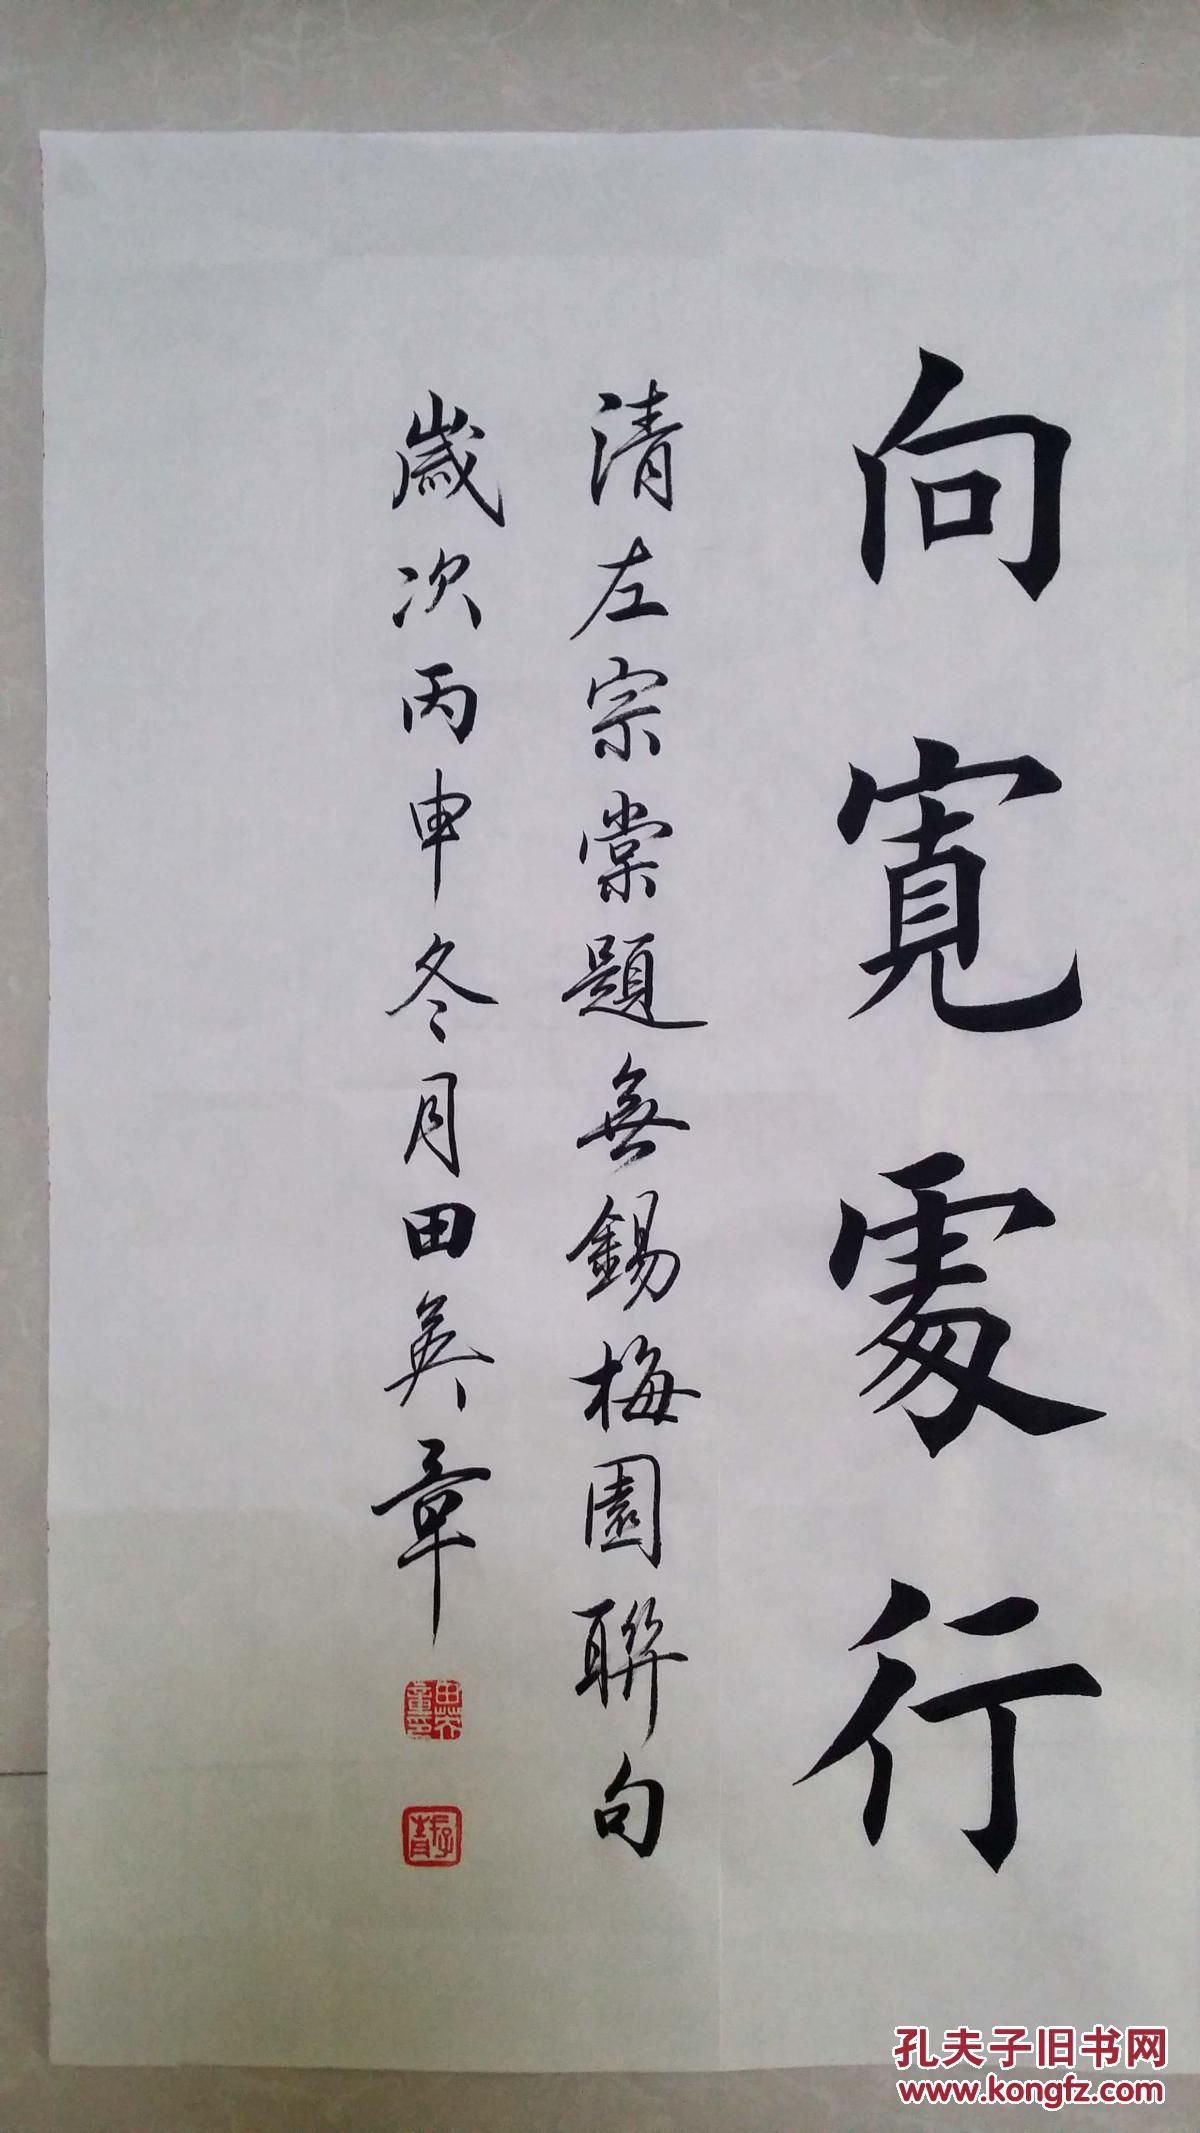 向寬處行
清左宗棠題無錫梅園聯句
歲次丙申冬月田英章
田英章印
孔夫子旧书网
www.kongfz.com